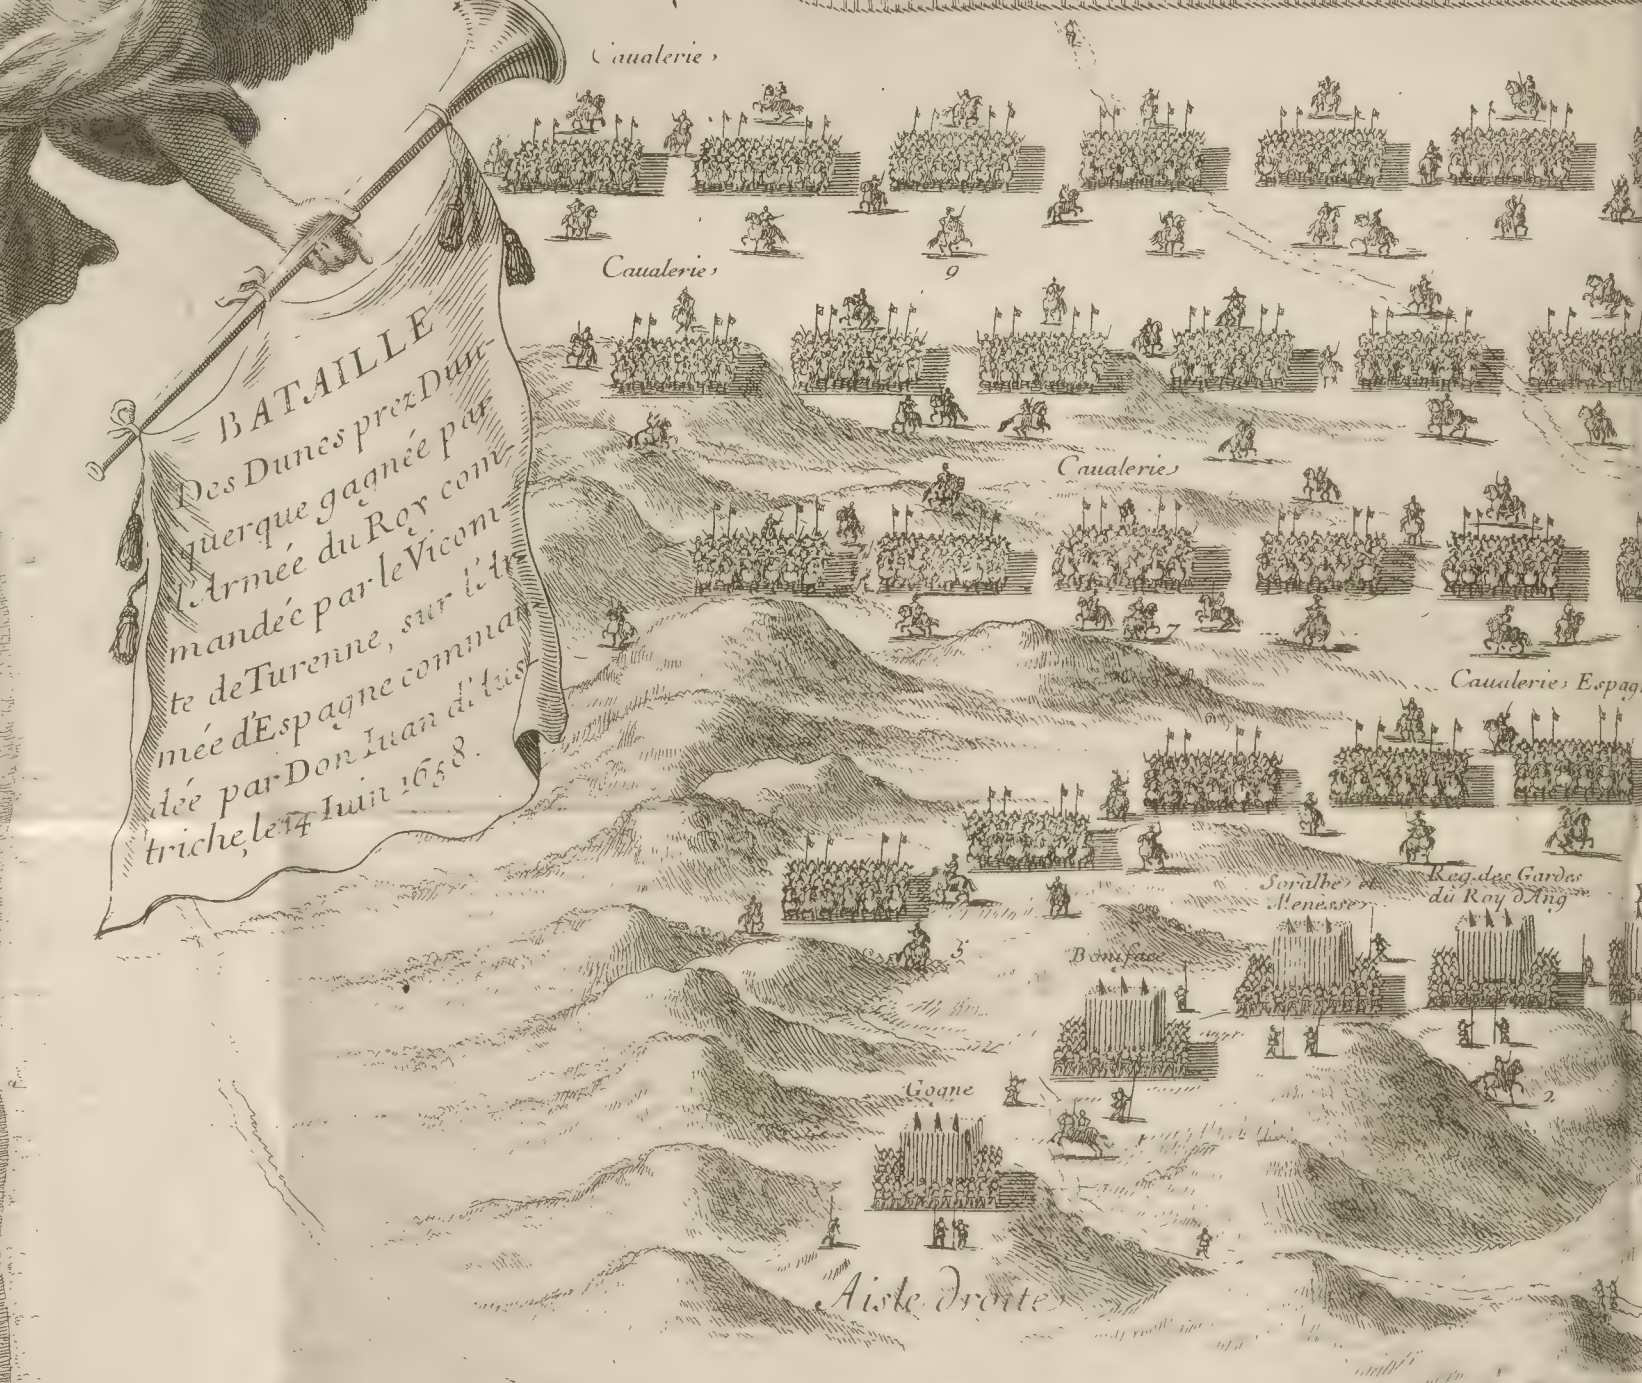 Caualerie
Caualerie
9
BATAILLE
Des Dunes prez Dun-
querque gagnée par
l'Armée du Roy com-
mandée par le Vicom-
te de Turenne, sur l'Ar
mée d'Espagne comman
dée par Don Iuan d'Aus-
triche, le 14 Iuin 1658.
Caualerie
7
Caualerie Espag
Soralbe et
Menesse
Reg. des Gardes
du Roy d'Ang
5
Boniface
2
Gogne
Aisle droite